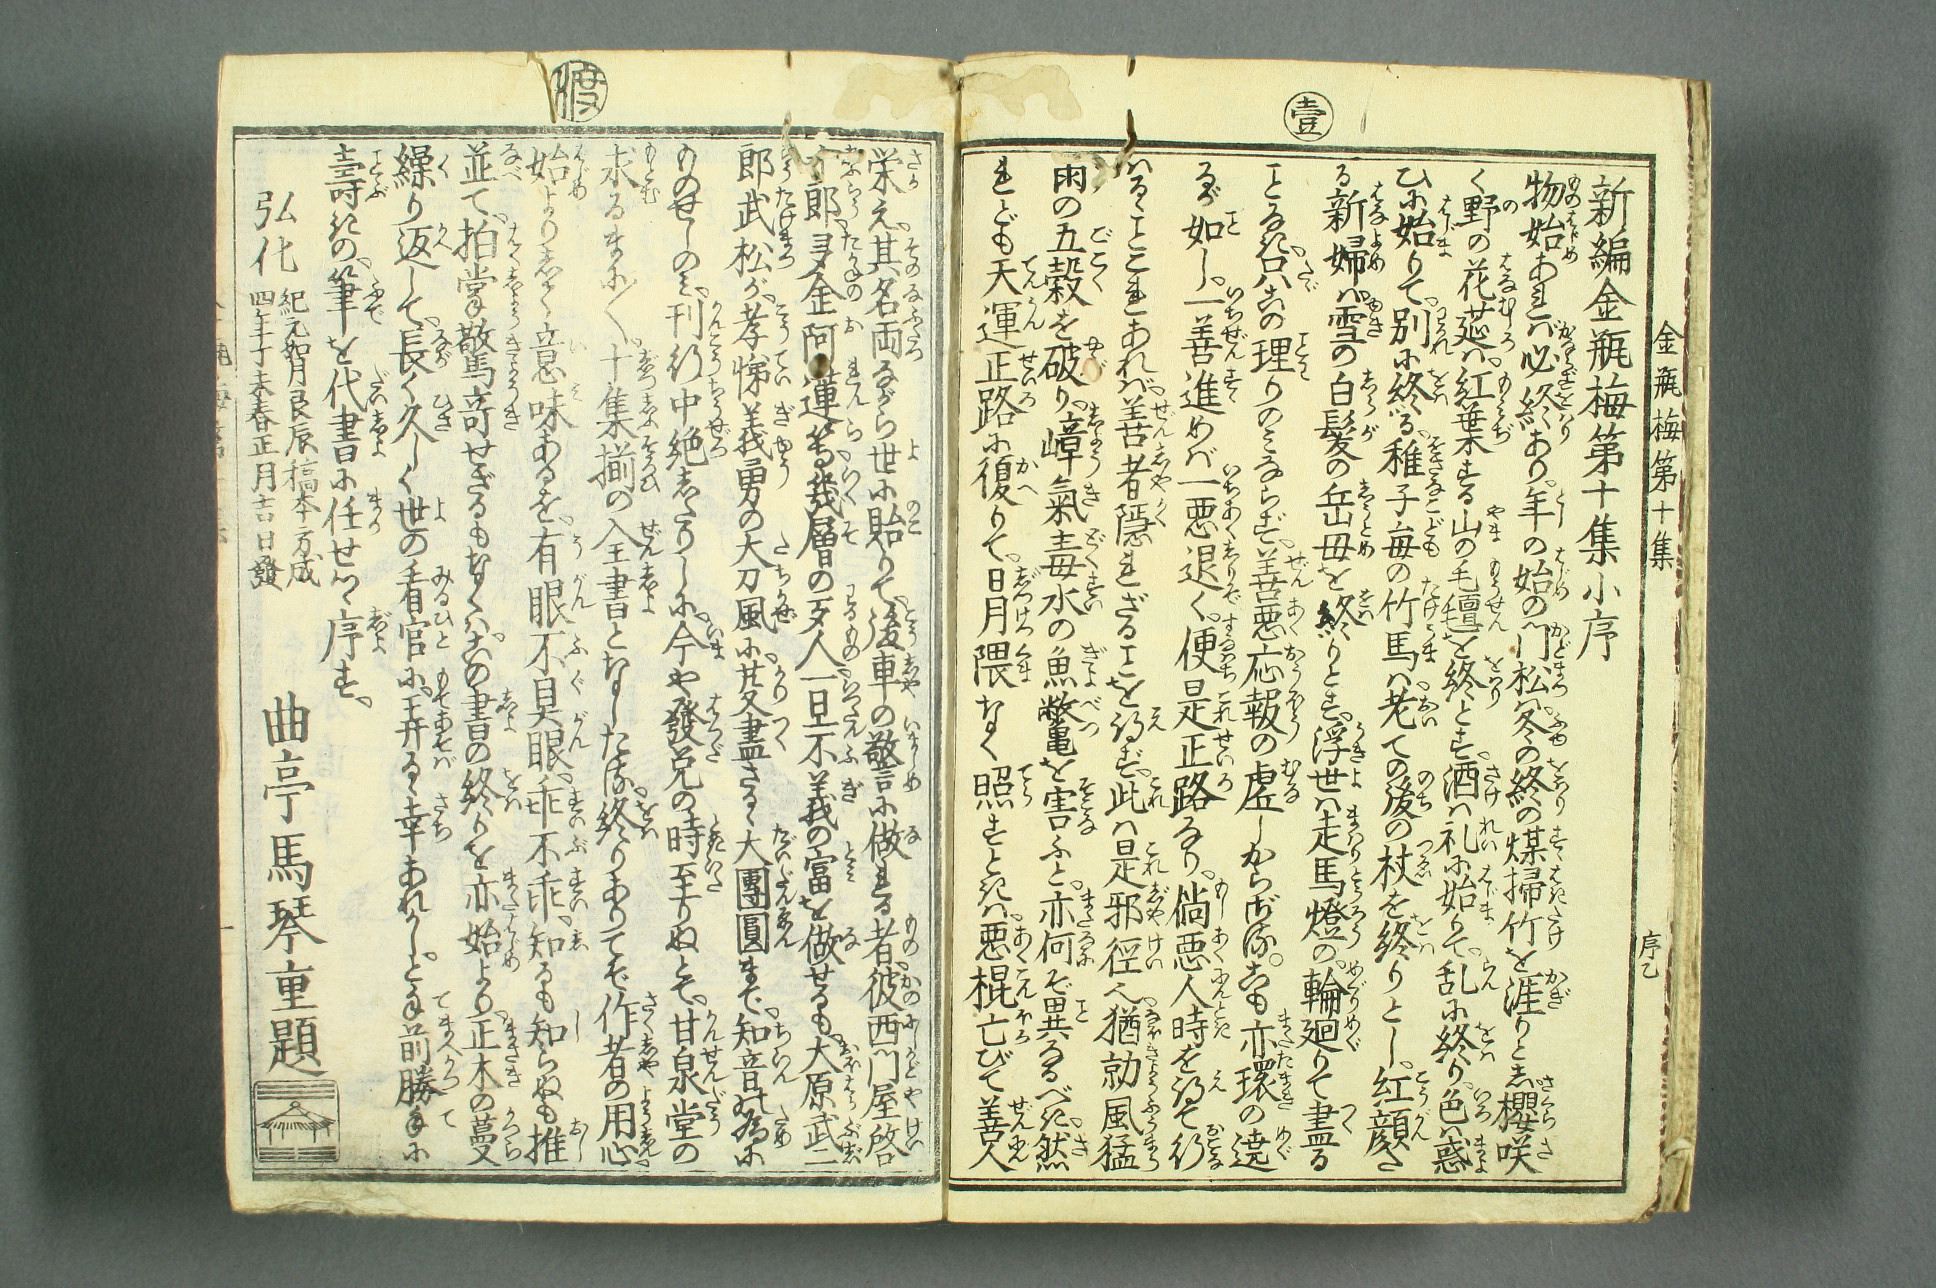 壹
金瓶梅第十集
序乙
新編金瓶梅第十集小序
物始あれば必終あり。年の始の門松は。冬の終の煤掃竹を涯りとし。櫻咲
く野の花莚は。紅葉する山の毛氈を終とす。酒は礼に始りて。乱に終り。色は惑
ひに始りて。別に終る。稚子毎の竹馬は。老ての後の杖を終りとし。紅顔な
る新婦は。雪の白髪の岳母を終りとす。浮世は走馬燈の。輪廻りて盡る
ことなきは。この理りのみならず。善悪応報の虚しからざる。
るが如し。一善進めば一悪退く。便是正路なり。倘悪人時を得て行
はるゝことこれあれば。善者隠れざることを得ず。此は是邪徑へ。猶勍風猛
雨の五穀を破り。嶂氣毒水の魚鼈を害ふと。亦何ぞ異るべき。然
れども天運正路に復りて。日月隈なく照すときは。悪棍亡びて善人
渡
栄え。其名両ながら世に貽りて。後車の警に做れる者。彼西門屋啓
十郎。多金阿蓮等。幾層の歹人。一旦不義の富を做せるも。大原武二
郎武松が。孝悌義勇の大刀風に。芟盡さるゝ大團圓まで。知音の為に
ものせしのみ。刊行中絶したりしに。今や發兌の時至りぬとぞ。甘泉堂の
求るまに／＼。十集揃の入全書となしたる。終りありてぞ作者の用心
始よりしるく。意味あるを。有眼不具眼。乖不乖。知るも知らぬも推
並て。拍掌敬馬奇せざるもなくは。この書の終りを亦始より。正木の蔓
繰り返して。長く久しく世の看官に。弄るゝ幸あれかしと。前勝に
壽きの。筆を代書に任せつゝ序す。
弘化
紀元如月良辰稿本方成
四年丁未春正月吉日發
曲亭馬琴重題